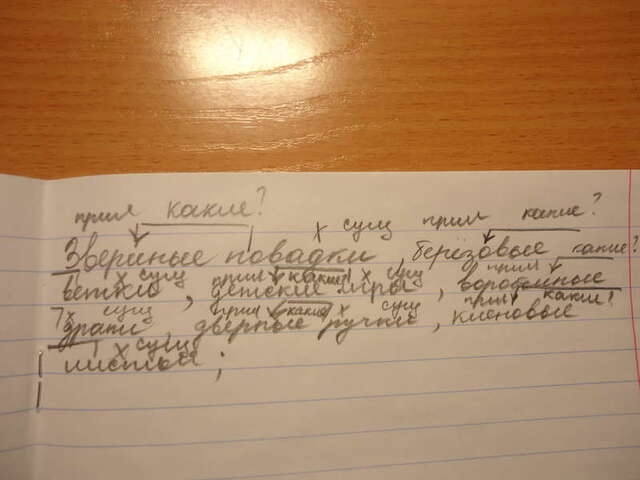 прил какие?
х сущ прил какие?
Звериные повадки, берёзовые какие?
х сущ прил какие х сущ прил
ветки, детские игры,
х сущ прил какие х сущ прил какие?
драки, дверные ручки, кленовые
х сущ
листья;